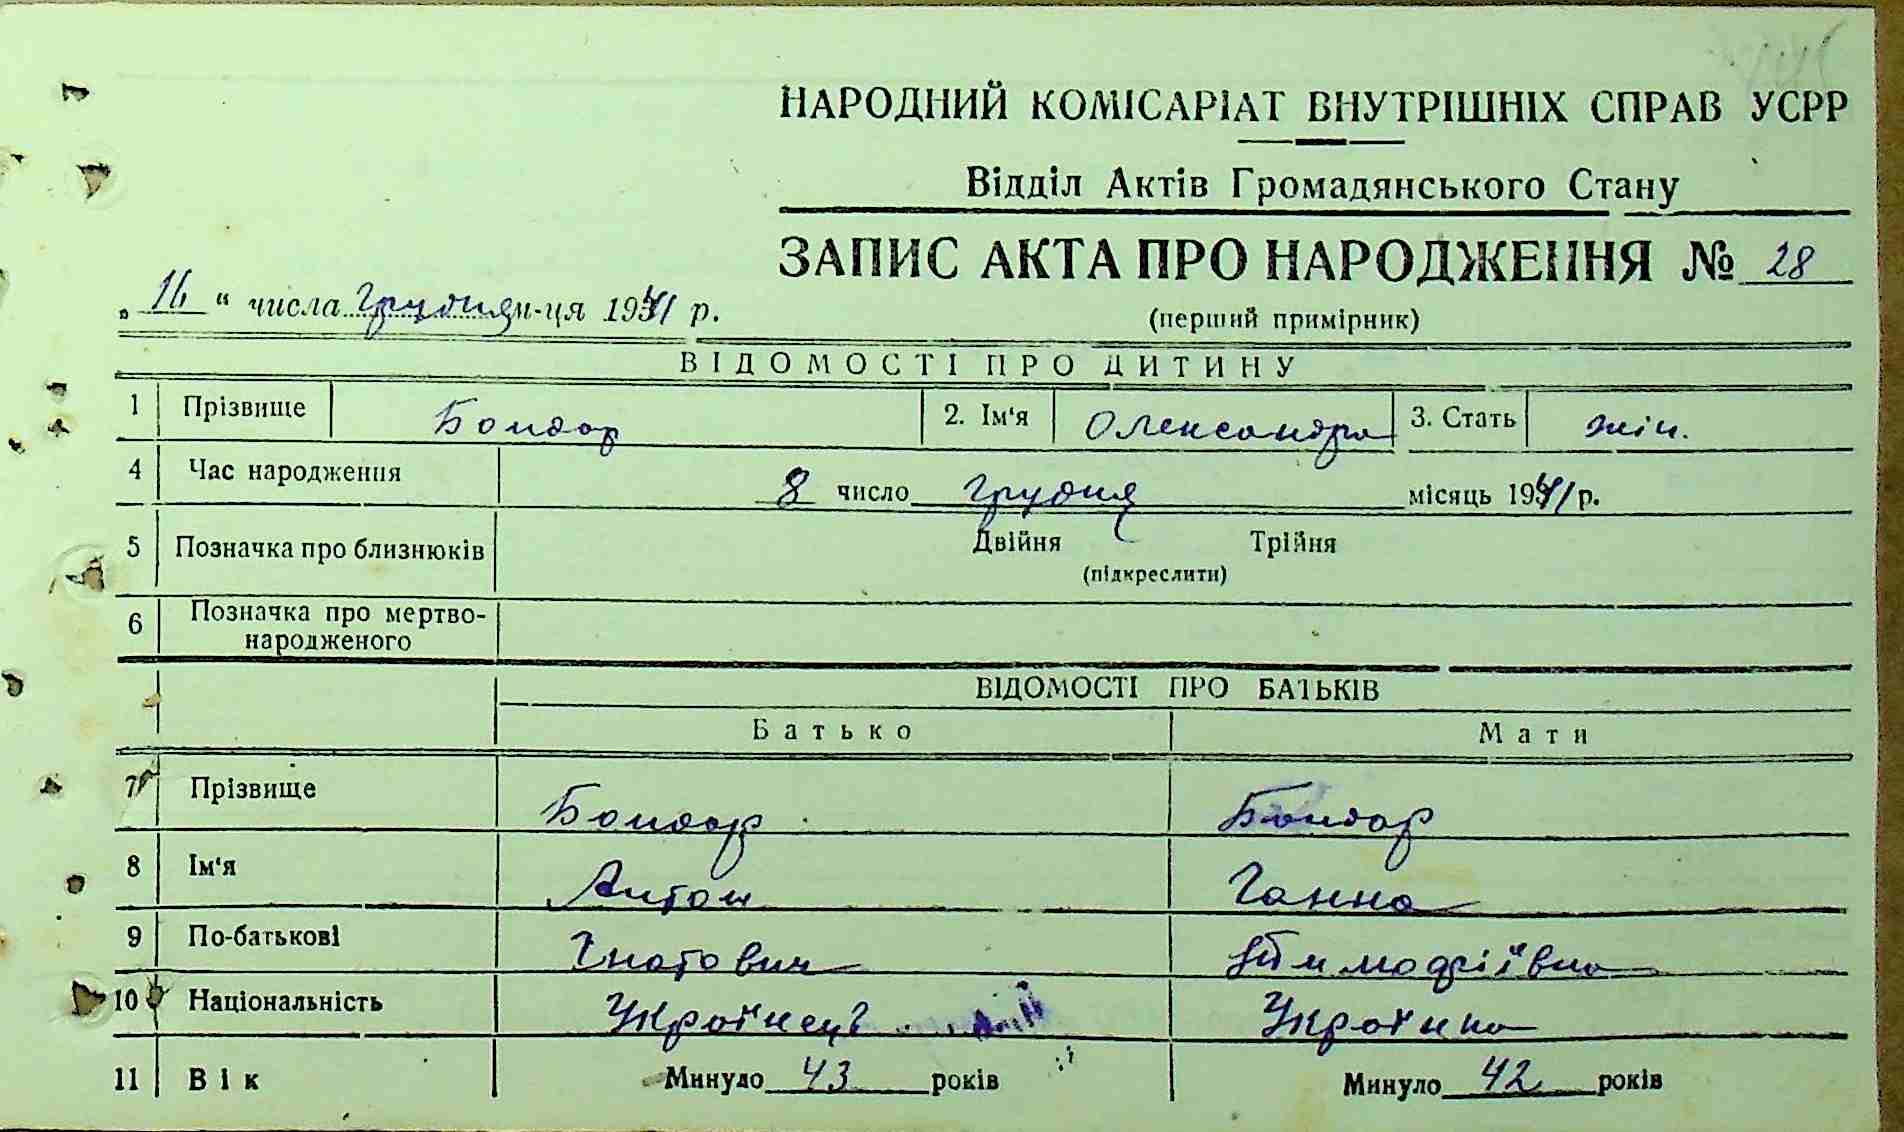 НАРОДНИЙ КОМІСАРІАТ ВНУТРІШНІХ СПРАВ УСРР
Відділ Актів Громадянського Стану
ЗАПИС АКТА ПРО НАРОДЖЕННЯ № 28
„ 16 “ числа Грудня м-ця 1941 р.
(перший примірник)
ВІДОМОСТІ ПРО ДИТИНУ
1 Прізвище Бондар 2. Ім'я Олександра 3. Стать жін.
4 Час народження 8 число Грудня місяць 1941 р.
5 Позначка про близнюків Двійня Трійня
(підкреслити)
6 Позначка про мертво-
народженого
ВІДОМОСТІ ПРО БАТЬКІВ
Батько Мати
7 Прізвище Бондар Бондар
8 Ім'я Антон Ганна
9 По-батькові Гнатович
10 Національність Українець Українка
11 Вік Минуло 43 років Минуло 42 років